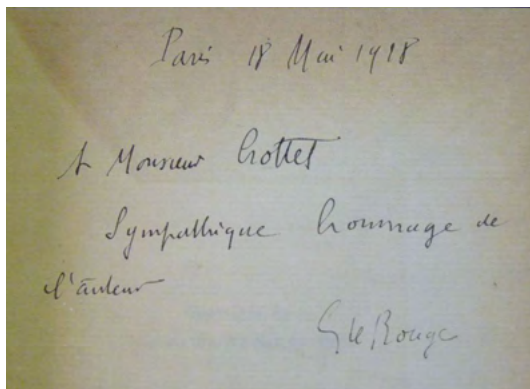 Paris 18 Mai 1918
A Monsieur Crottet
Sympathique hommage de
l'auteur
G Le Rouge